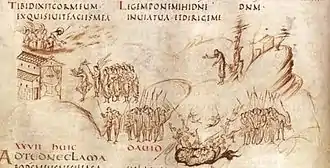 TIBIDIXITCORMEUM
EXQUISIUITFACIESMEA
LEGEMPONEMIHIDNE
INUIATUAETDIRIGEME
DNM·
XXVII HUIC
DAUID
ADTEDNECLAMA